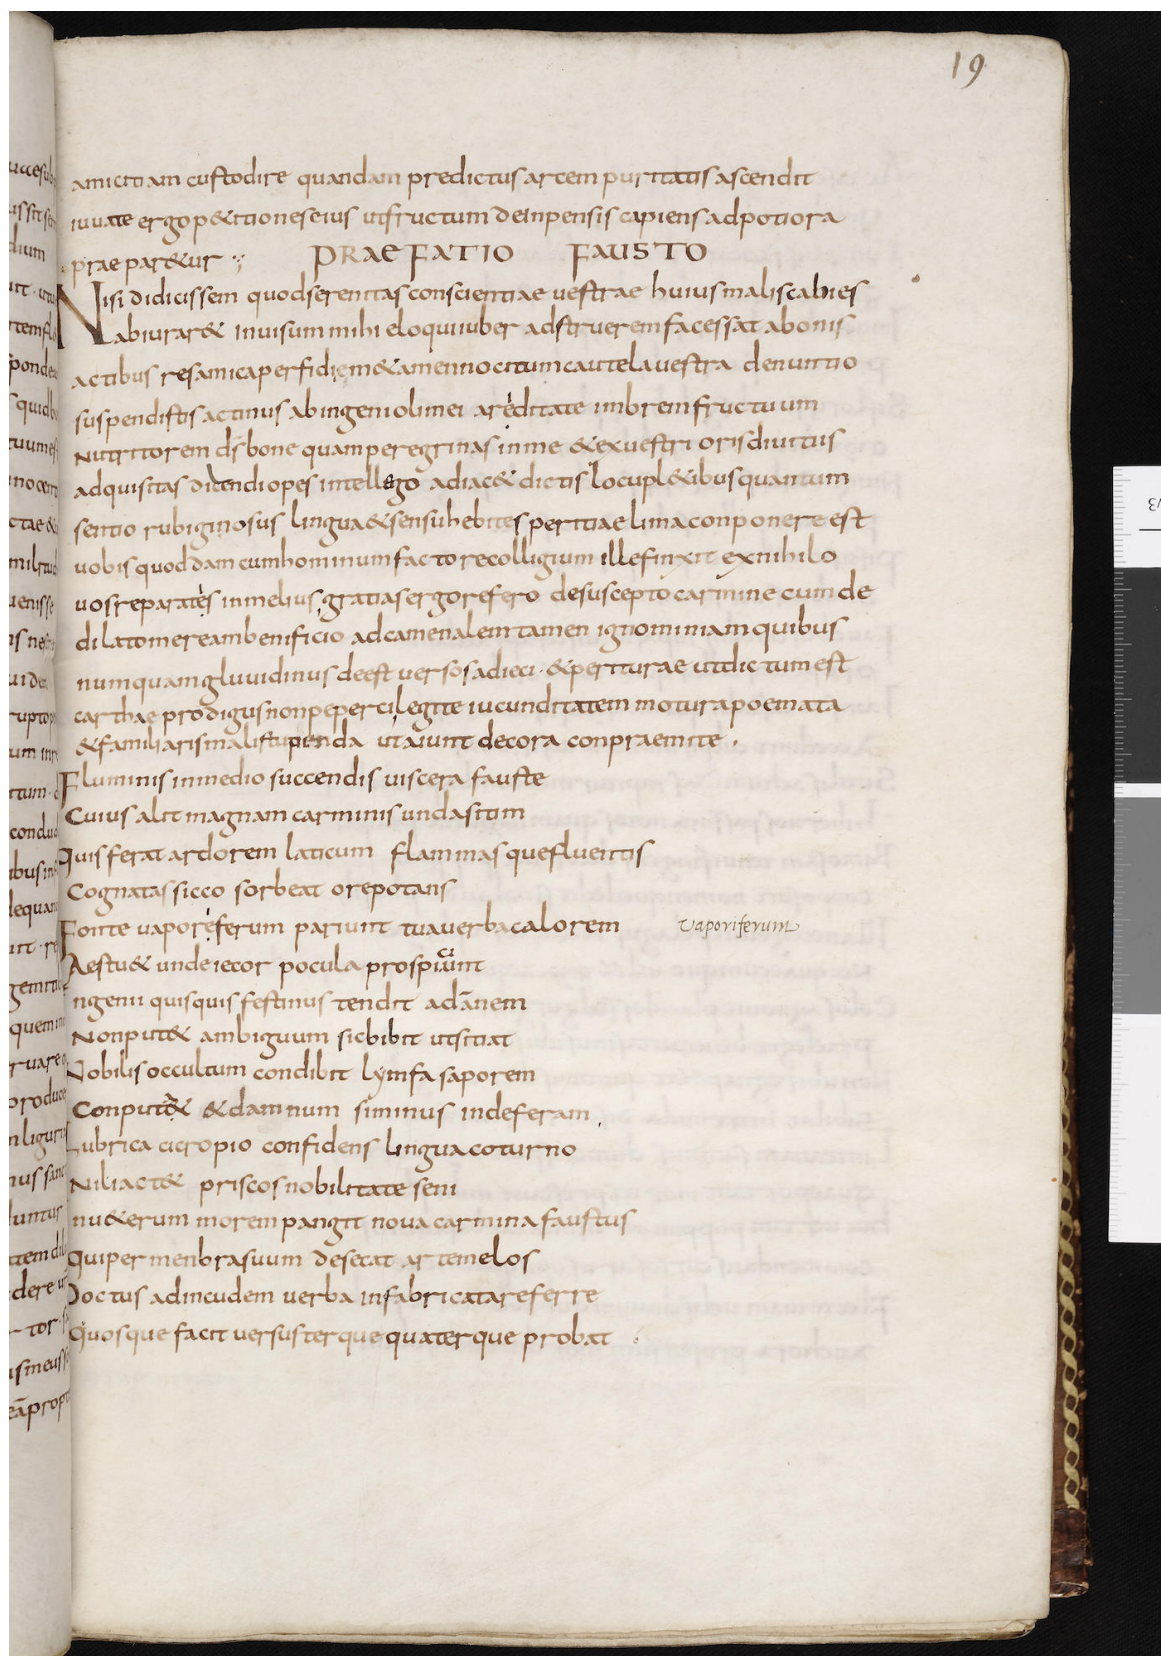 19
amicitiam custodire quandam predictus arcem puritatis ascendit
iuuate ergo p&itiones eius ut fructum de inpensis capiens ad potiora
praepar&ur
PRAEFATIO FAUSTO
Nisi didicissem quod serenitas conscientiae uestrae huius mali scabies
abiurar& inuisum mihi eloquii uber adstruerem facessat a bonis
actibus res amica perfidiem & amenno citum cautela uestra denuntio
suspendistis actinus ab ingenioli mei areditate imbrem fructuum
nutritorem ds bone quam peregrinas in me & ex uestri oris diuitiis
adquisitas dicendi opes intellego adiac& dictis locupl&ibus quantum
sentio rubiginosus lingua & sensu hebites peritiae lima conponere est
uobis quoddam cum hominum factore colligium ille finxit ex nihilo
uos reparates in melius gratias ergo refero de suscepto carmine cum de
dilato mereambenificio ad camenalem tamen ignominiam quibus
numquam gluuidinus deest uersos adieci · & periturae ut dictum est
carthae prodigus non peperci legite iucunditatem motura poemata
& familiaris mali stupenda ut aiunt decora conpraemite .
Fluminis in medio succendis uiscera fauste
Cuius alit magnam carminis unda sitim
Quis ferat ardorem laticum flammasque fluentis
Cognatas sicco sorbeat ore potans
Fonte uaporeferum pariunt tua uerba calorem vaporiferum
Aestu& unde iecor pocula prospiciunt
ngenii quisquis festinus tendit ad ānem
Non put& ambiguum sic bibit ut sitiat
Nobilis occultum condibit lymfa saporem
Conput& & damnum si minus inde feram
Lubrica cicropio confidens lingua coturno
Niliact& priscos nobilitate seni
nu&erum morem pangit noua carmina faustus
Qui per menbra suum desecat arte melos
Doctus ad incudem uerba infabricata referre
Quosque facit uersus terque quaterque probat .